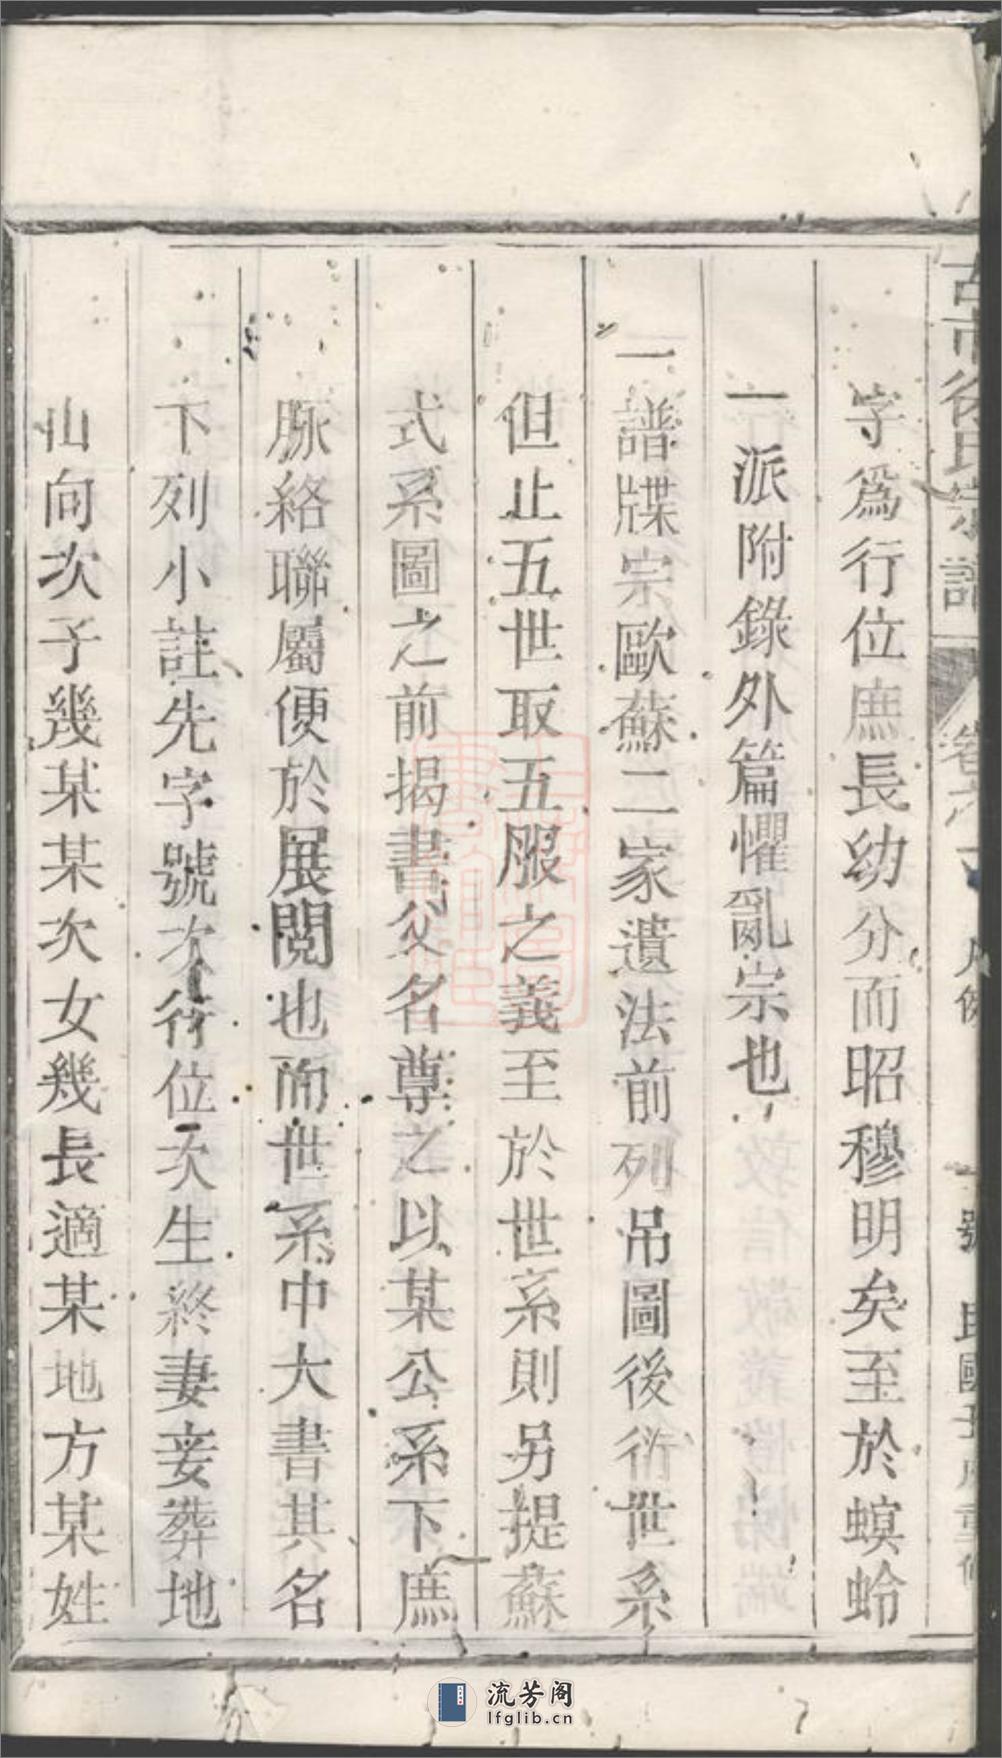 古市徐氏宗譜
卷六
凡例
字爲行位庶長幼分而昭穆明矣至於螟蛉
一派附錄外篇懼亂宗也
一譜牒宗歐蘇二家遺法前列吊圖後衍世系
但止五世取五服之義至於世系則另提蘇
式系圖之前揭書父名尊之以某公系下庶
脉絡聯屬便於展閱也而世系中大書其名
下列小註先字號次行位次生終妻妾葬地
山向次子幾某某次女幾長適某地方某姓
流芳阁
lfglib.cn